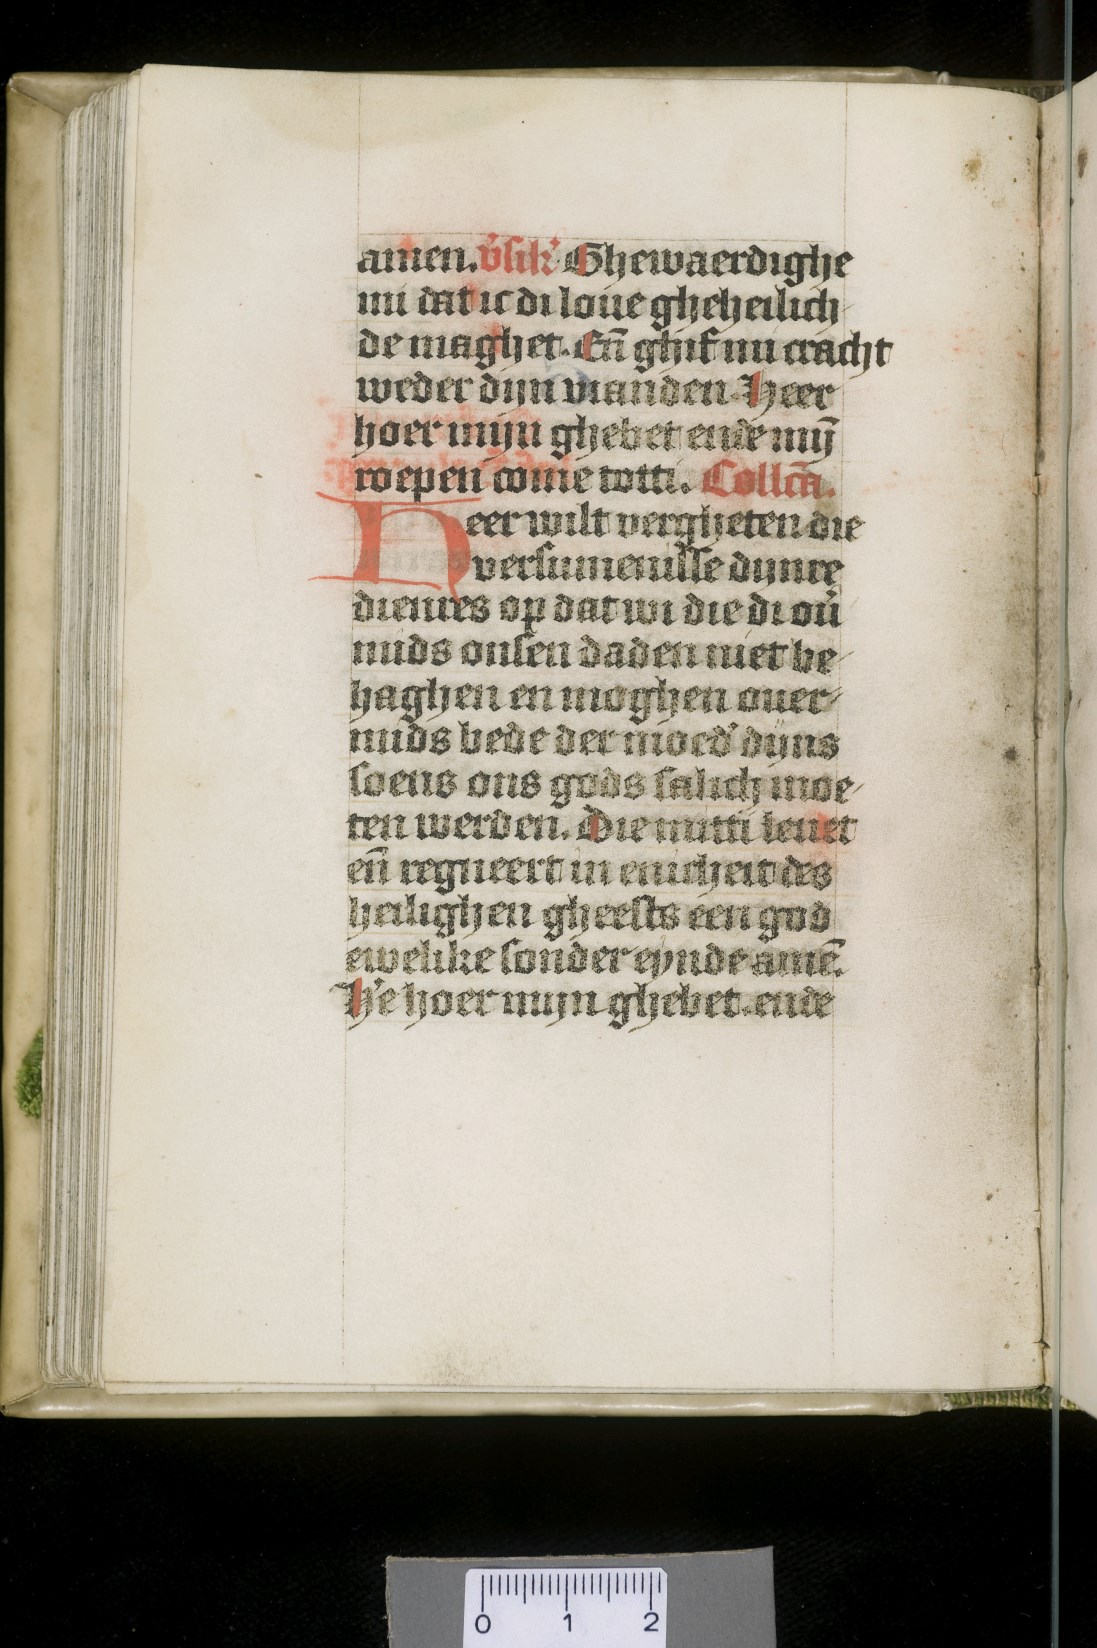 amen. v̉sik̉ Ghewaerdighe
mi dat ic di loue gheheilich-
de maghet. Eñ ghif mi cracht
weder dijn vianden. Heer
hoer mijn ghebet ende mȳ
roepen come totti. Collcā.
Heer wilt vergheten die
versumenisse dijnre
dienres op dat wi die di oủ
mids onsen daden niet be-
haghen en moghen ouer-
mids bede der moed̉ dijns
soens ons gods salich moe-
ten werden. Die mitti leuet
eñ regneert in enicheit des
heilighen gheests een god
ewelike sonder eynde amē.
H̉e hoer mijn ghebet. ende
0 1 2